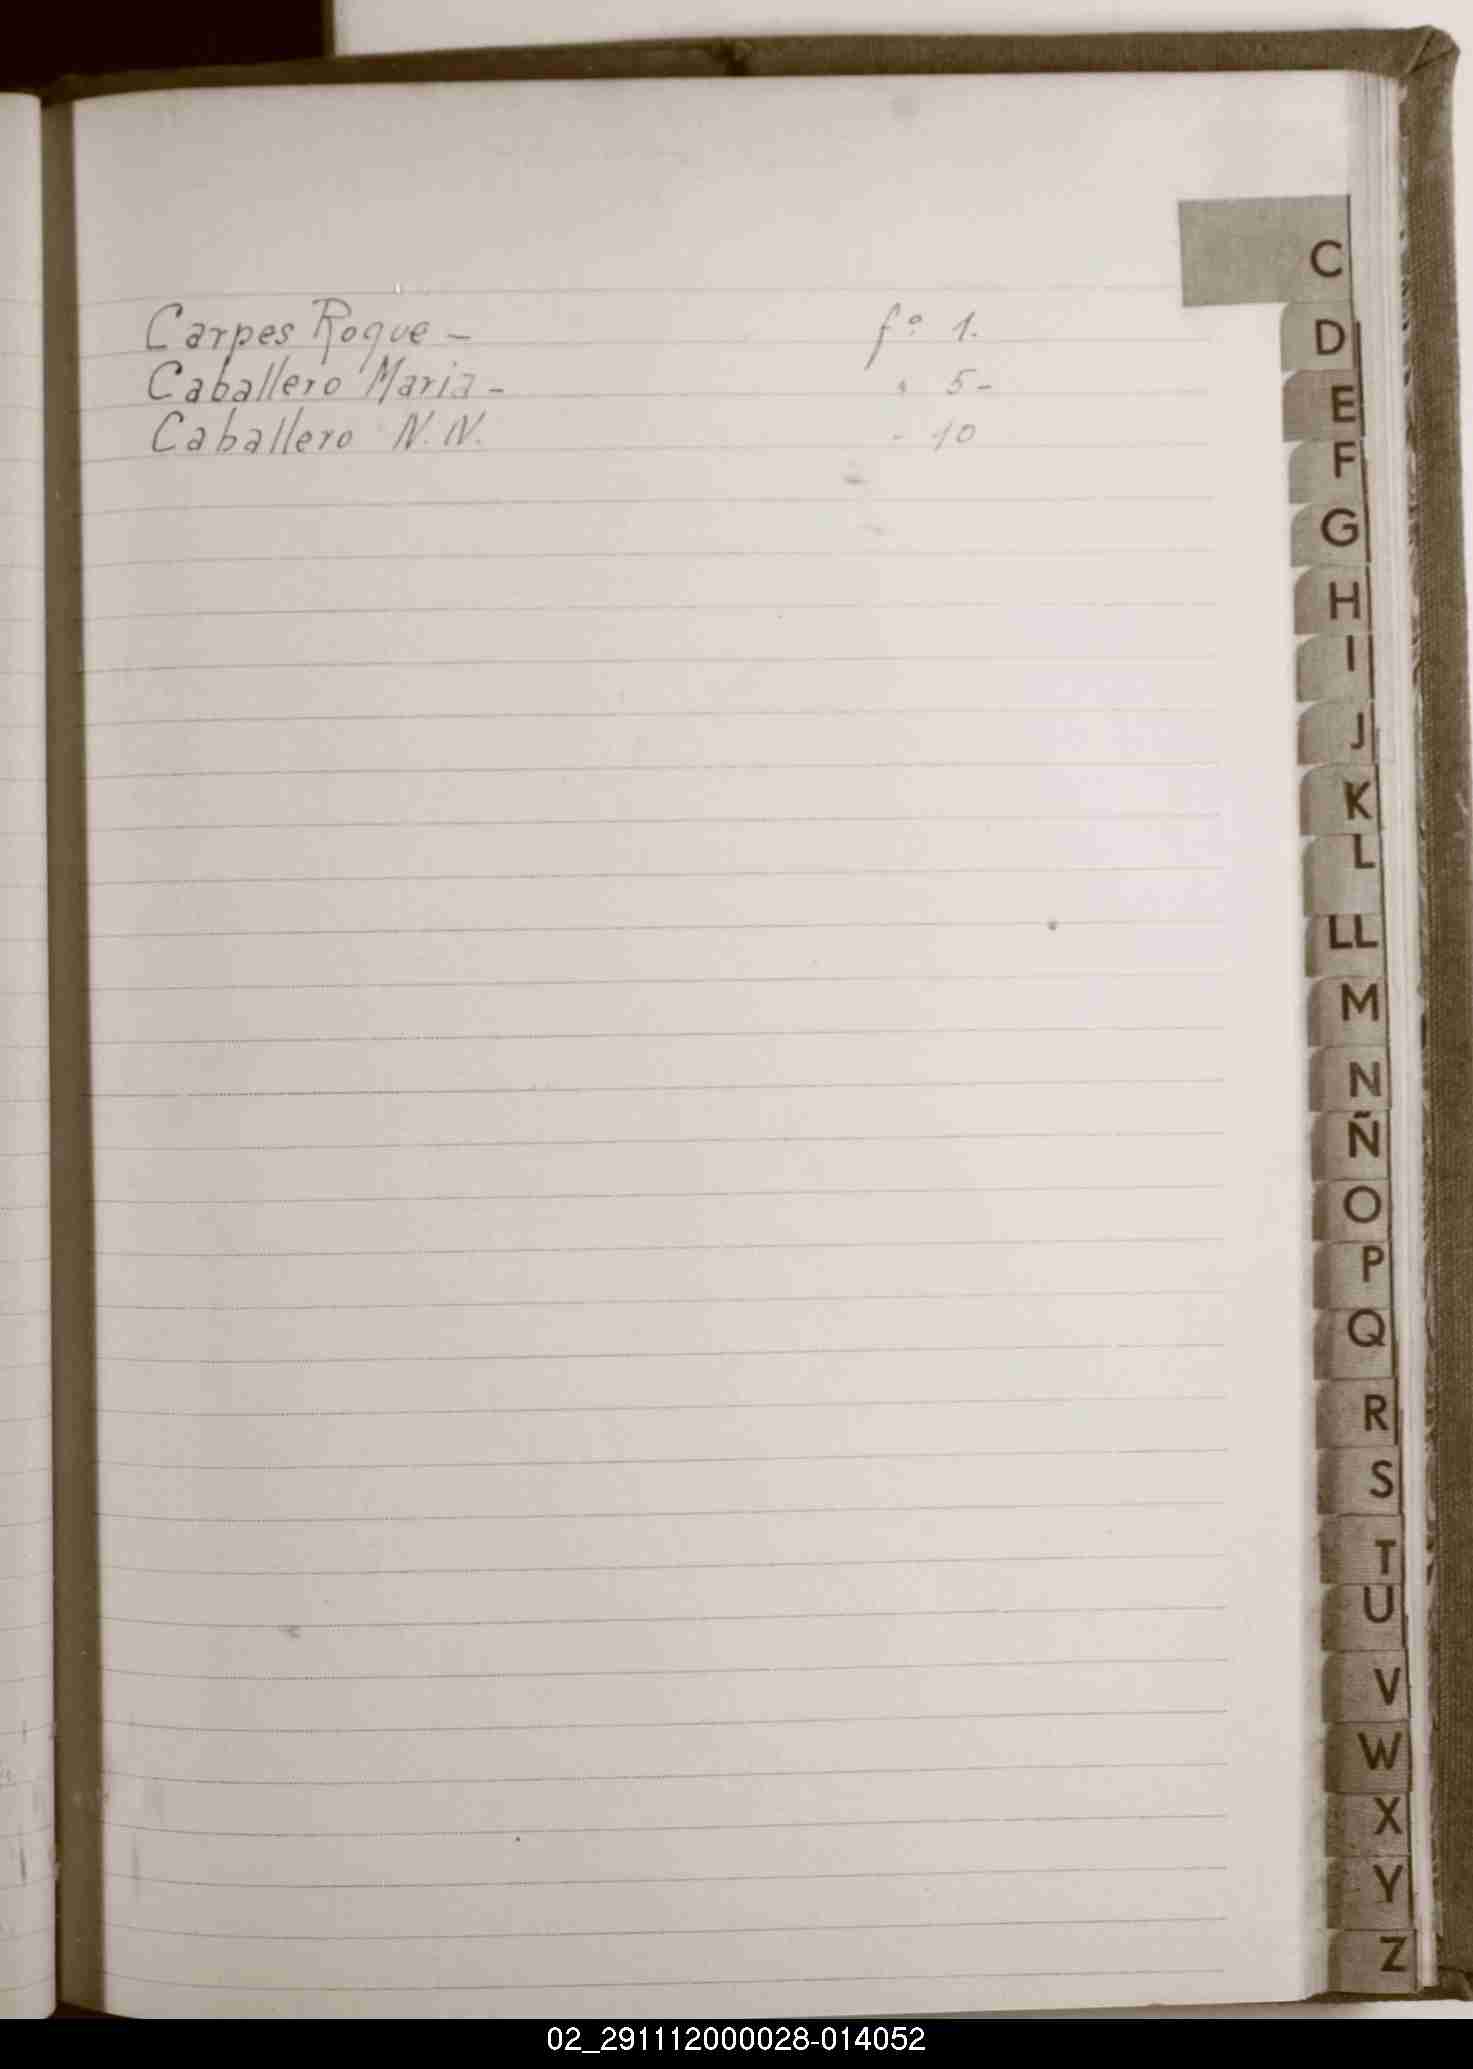 C
Carpes Roque - fº 1.
Caballero Maria - " 5-
Caballero N.N. - 10
D
E
F
G
H
I
J
K
L
LL
M
N
Ñ
O
P
Q
R
S
T
U
V
W
X
Y
Z
02_291112000028-014052